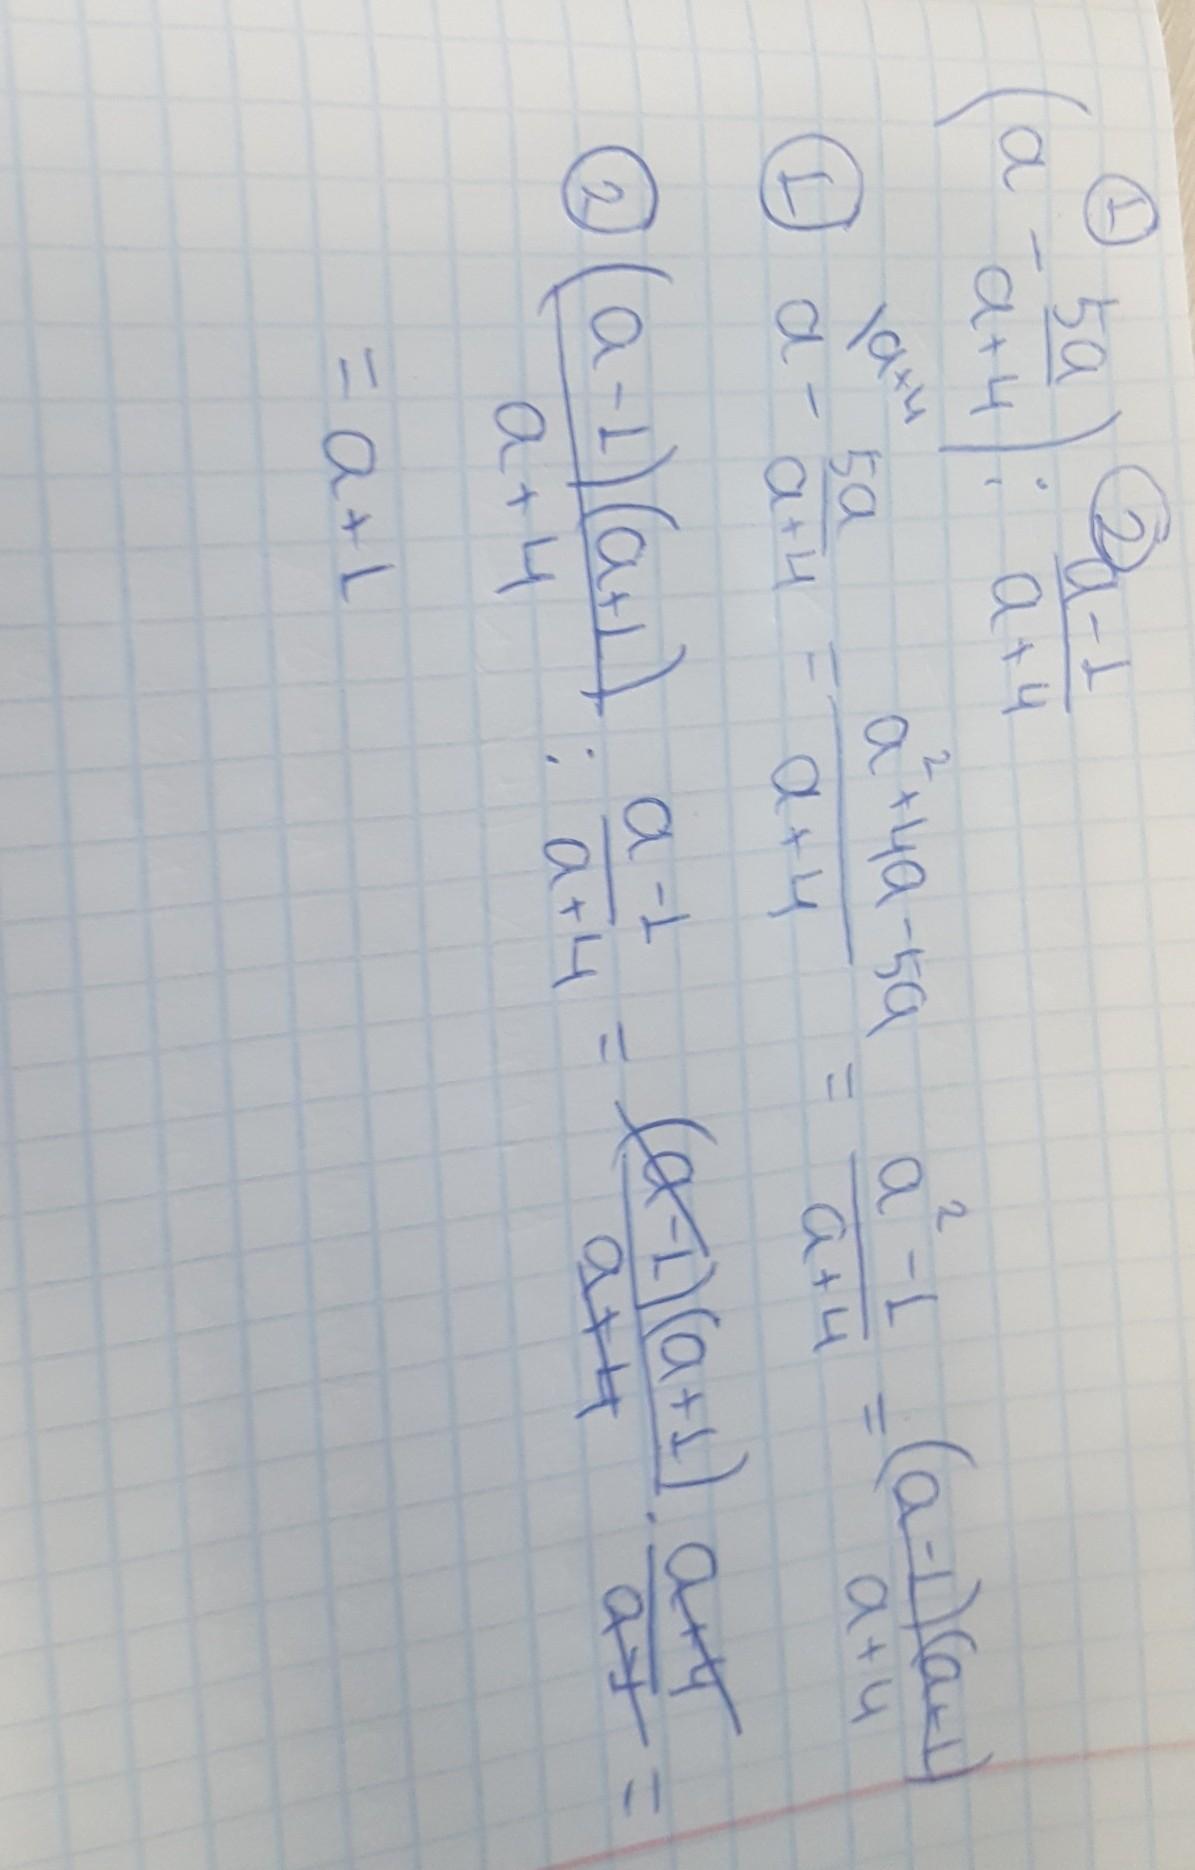 ① ②
(a - 5a/(a+4)) : (a-1)/(a+4)
① a\a+4 - 5a/(a+4) = (a²+4a-5a)/(a+4) = (a²-1)/(a+4) = (a-1)(a+1)/(a+4)
② (a-1)(a+1)/(a+4) : (a-1)/(a+4) = (a-1)(a+1)/(a+4) · (a+4)/(a-1) =
= a+1